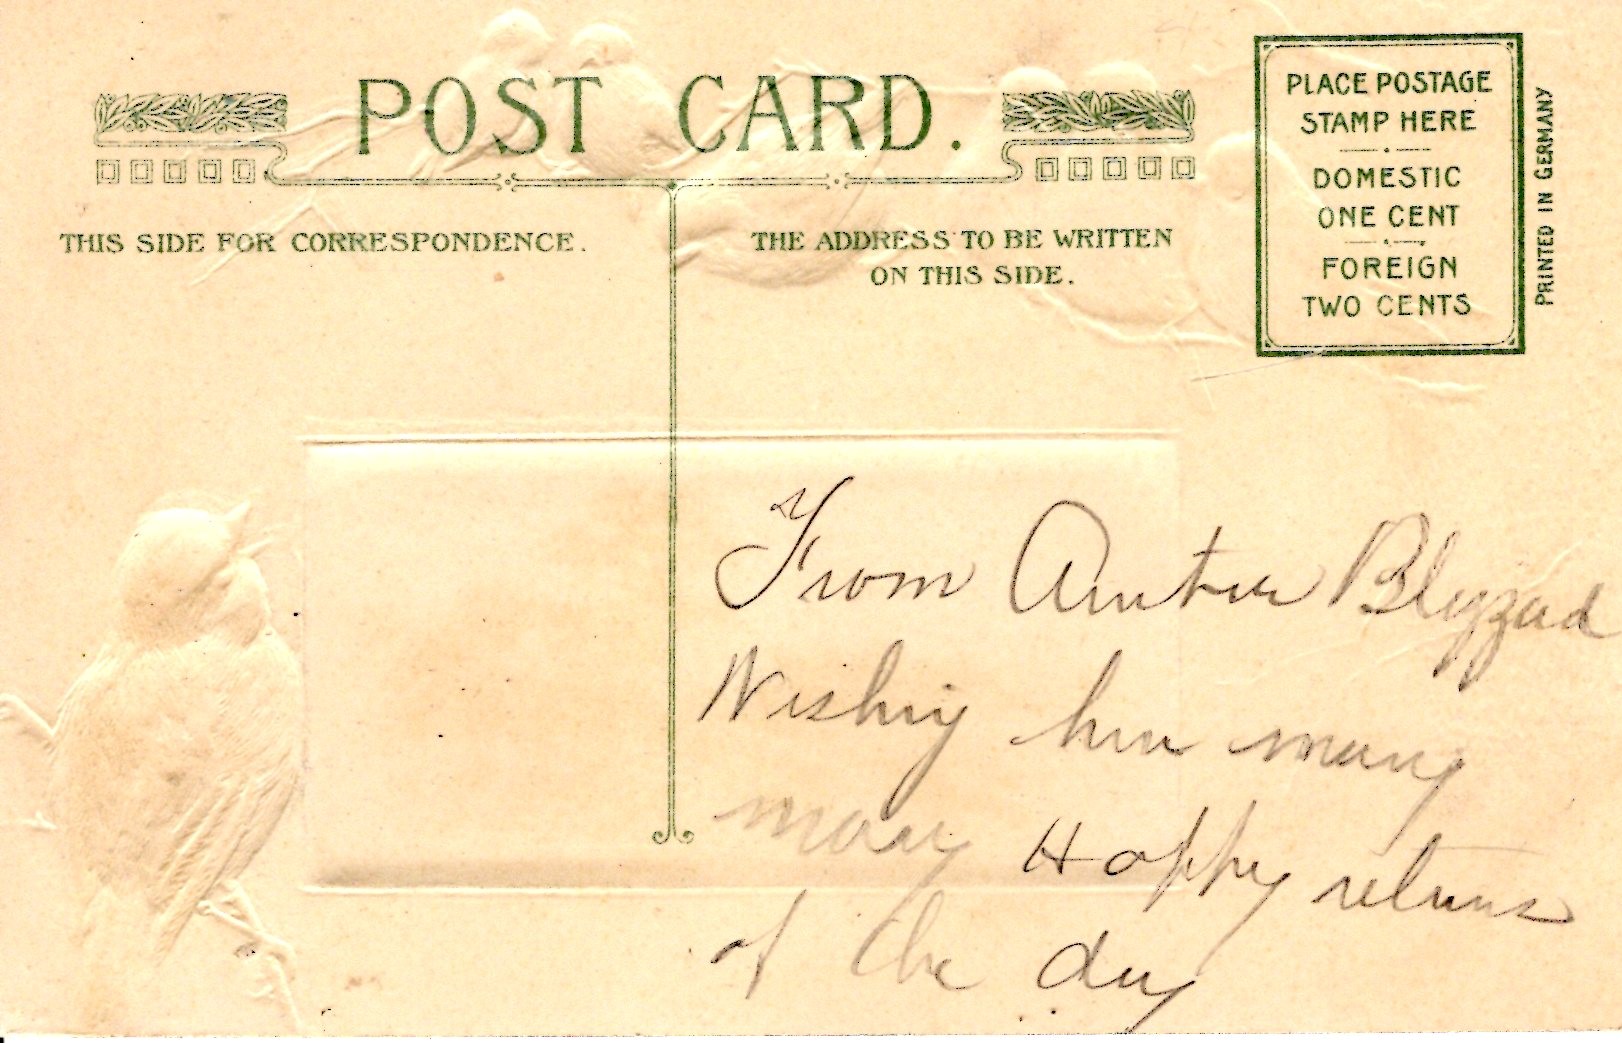 POST CARD.
THIS SIDE FOR CORRESPONDENCE.
THE ADDRESS TO BE WRITTEN
ON THIS SIDE.
PLACE POSTAGE
STAMP HERE
DOMESTIC
ONE CENT
FOREIGN
TWO CENTS
PRINTED IN GERMANY
From Blizzard
Wishing him many
many Happy returns
of the day